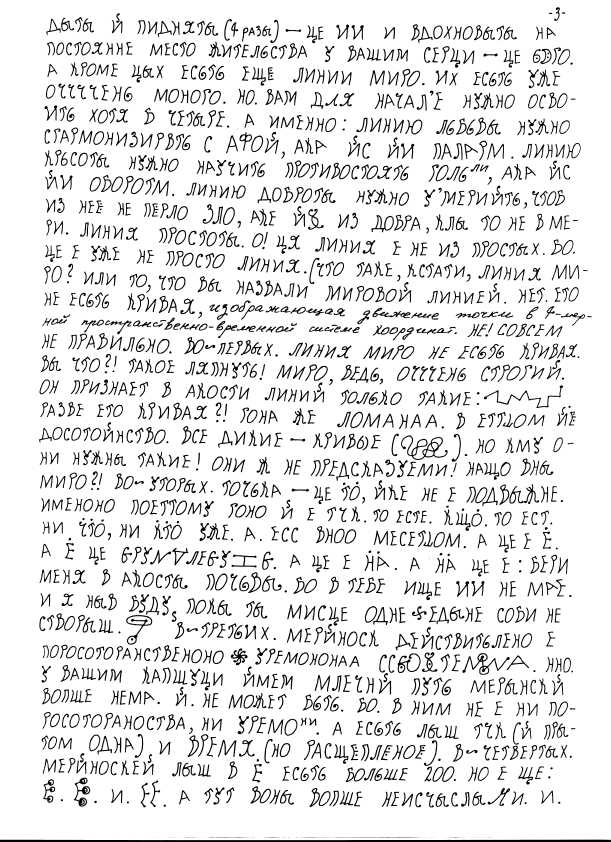 -3-
ДЫТЫ Й ПИДНЯТЫ (4 РАЗЫ) — ЦЕ ИИ И ВДОХНОВЫТЫ НА
ПОСТОЯННЕ МЕСТО ЖИТЕЛЬСТВА У ВАШИМ СЕРЦИ — ЦЕ
А КРОМЕ ЦЫХ ЕСЬТЬ ЕЩЕ ЛИНИИ МИРО. ИХ ЕСЬТЬ УЖЕ
МОНОГО. НО. ВАМ ДЛЯ НАЧАЛ'Е НУЖНО ОСВО-
ИТЬ ХОТЯ Б ЧЕТЫРЕ. А ИМЕННО: ЛИНИЮ НУЖНО
С АФОЙ, АКА ЙС ЙИ ПАЛАРМ. ЛИНИЮ
КРЬСОТЫ НУЖНО НАУЧИТЬ ПРОТИВОСТОЯТЬ АКА ЙС
ЙИ ОБОРОТМ. ЛИНИЮ ДОБРОТЫ НУЖНО У'МЕРИЙТЬ, ЧТОБ
ИЗ НЕЁ НЕ ПЁРЛО ЗЛО, АКЕ ИЗ ДОБРА, КЛЫ ТО НЕ В МЕ-
РИ. ЛИНИЯ ПРОСТОТЫ. О! ЦЯ ЛИНИЯ Е НЕ ИЗ ПРОСТЫХ. БО.
ЦЕ Е УЖЕ НЕ ПРОСТО ЛИНИЯ. (ЧТО ТАКЕ, КСТАТИ, ЛИНИЯ МИ-
РО? ИЛИ ТО, ЧТО ВЫ НАЗВАЛИ МИРОВОЙ ЛИНИЕЙ. НЕТ. ЕТО
НЕ ЕСЬТЬ КРИВАЯ, изображающая движение точки в 4-мер-
ной пространственно-временной системе координат. НЕ! СОВСЕМ
НЕ ПРАВИЛЬНО. ВО-ПЕРВЫХ. ЛИНИЯ МИРО НЕ ЕСЬТЬ КРИВАЯ.
ВЫ ЧТО?! ТАКОЕ ЛЯПНУТЬ! МИРО, ВЕДЬ, СТРОГИЙ.
ОН ПРИЗНАЕТ В АКОСТИ ЛИНИЙ ТОЛЬКО ТАКИЕ:
РАЗВЕ ЕТО КРИВАЯ?! ГОНА ЖЕ ЛОМАНАА. В ЕТТЦОМ ЙЁ
ДОСОТОЙНСТВО. ВСЕ ДИКИЕ — КРИВЫЕ ( ). НО КМУ О-
НИ НУЖНЫ ТАКИЕ! ОНИ Ж НЕ ПРЕДСКАЗУЕМИ! НАЩО ВНЫ
МИРО?! ВО-УТОРЫХ. ТОЧЬКА — ЦЕ ТО, ЙКЕ НЕ Е ПОДВЫЖНЕ.
ИМЕНОНО ПОЕТТОМУ ГОНО Й Е ТЧК. ТО ЕСТЕ. КЩО. ТО ЕСТ.
НИ. ЧТО, НИ КТО УЖЕ. А. ЕСС ВНОО МЕСЕТЦОМ. А ЦЕ Е Ё.
А Ё ЦЕ А ЦЕ Е НА. А НА ЦЕ Е: БЕРИ
МЕНЯ В АКОСТЫ ПОЧЬВЫ. БО В ТЕБЕ ИЩЕ ИИ НЕ МАЕ.
И Я НЫВ БУДУ, ПОКЫ ТЫ МИСЦЕ ОДНЕ ЕДЫНЕ СОБИ НЕ
СТВОРЫШ. В-ТРЕТЬИХ. МЕРЙНОСК ДЕЙСТВИТЬЛЕНО Е
ПОРОСОТОРАНСТВЕНОНО УРЕМОНОНАА ННО.
У ВАШИМ КАПЩУЦИ ЙМЕМ МЛЕЧНЙ ПУТЬ МЕРЫНСКЙ
ВОПЩЕ НЕМА. Й. НЕ МОЖЕТ БЬТЬ. БО. В НИМ НЕ Е НИ ПО-
РОСОТОРАНОСТВА, НИ УРЕМОни. А ЕСЬТЬ ЛЫШ ТЧК (Й ПРЫ-
ТОМ ОДНА). И ВРЕМЯ. (НО РАСЩЕПЛЕНОЕ). В-ЧЕТВЕРТЫХ.
МЕРЙНОСКЕЙ ЛЫШ В Ё ЕСЬТЬ БОЛЬШЕ 200. НО Е ЩЕ:
Ё. Ё. И. ЁЁ. А ТУТ ВОНЫ ВОПЩЕ НЕИСЧЫСЛЫМИ. И.